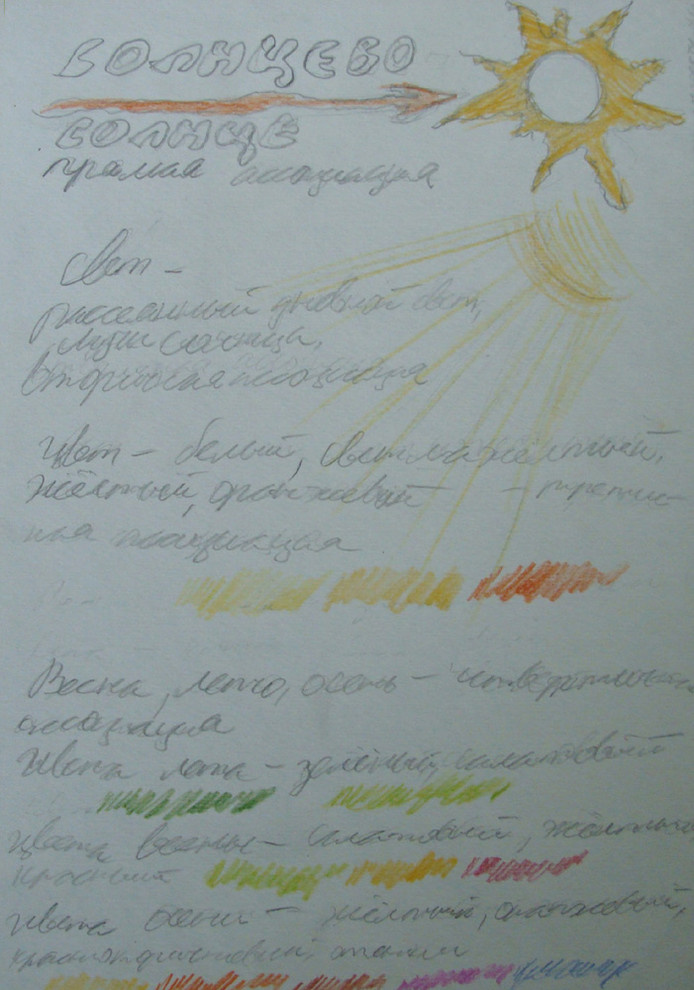 СОЛНЦЕВО
СОЛНЦЕ
прямая ассоциация
Свет –
рассеянный дневной свет,
лучи солнца,
вторичная ассоциация
Цвет – белый, светложёлтый,
жёлтый, оранжевый – третич-
ная ассоциация
Весна, лето, осень –
ассоциация
Цвета лета – зелёный, салатовый
Цвета весны – салатовый, жёлтый,
красный
Цвета осени – жёлтый,